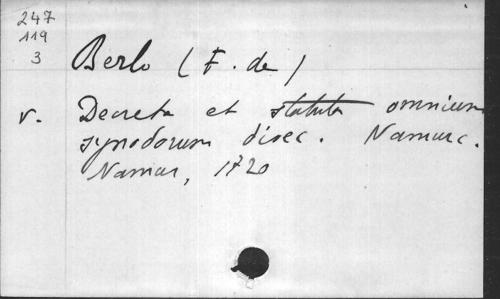 247
119
3
Berlo (F. de)
v. Decreta et statuta omnium
synodorum dioec. Namurc.
Namur, 1720